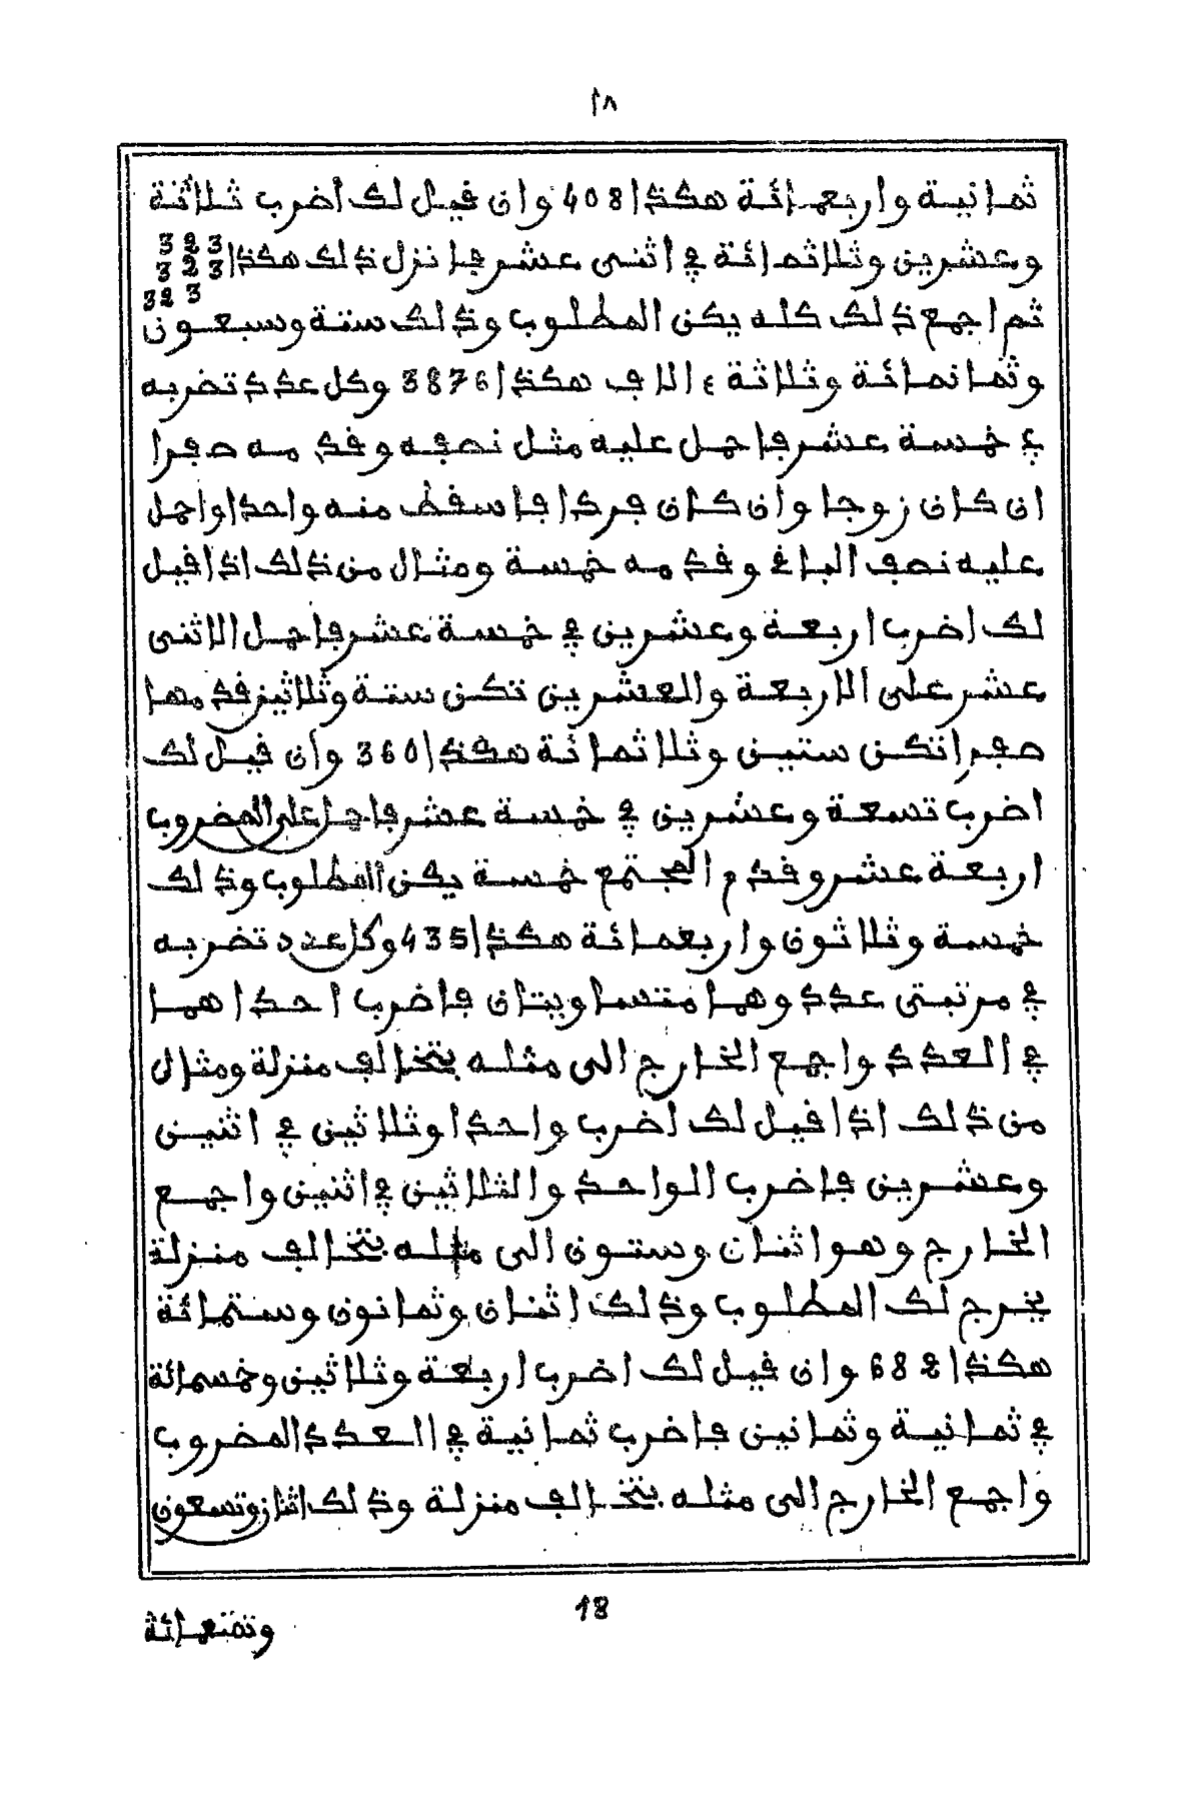 ١٨
ثمانية واربعمائة هكذا 408 وان فيل لك اضرب ثلاثة
وعشرين وثلاثمائة في اثنى عشر فانزل ذلك هكذا 323
323
323
ثم اجمع ذلك كله يكن المطلوب وذلك ستة وسبعون
وثمانمائة وثلاثة ءالاف هكذا 3876 وكل عدد تضربه
في خمسة عشر فاحمل عليه مثل نصفه وقدمه صفرا
ان كان زوجا وان كان فردا فاسقط منه واحدا واحمل
عليه نصف الباقي وقدمه خمسة ومثال من ذلك اذا قيل
لك اضرب اربعة وعشرين في خمسة عشر فاحمل الاثنى
عشر على الاربعة والعشرين تكن ستة وثلاثين قدمها
صفرا تكن ستين وثلاثمائة هكذا 360 وان قيل لك
اضرب تسعة وعشرين في خمسة عشر فاحمل على المضروب
اربعة عشر وقدم المجتمع خمسة يكن المطلوب وذلك
خمسة وثلاثون واربعمائة هكذا 435 وكل عدد تضربه
في مرتبتى عدد وهما متساويتان فاضرب احداهما
في العدد واجمع الخارج الى مثله بتخالف منزلة ومثال
من ذلك اذا قيل لك اضرب واحدا وثلاثين في اثنين
وعشرين فاضرب الواحد والثلاثين في اثنين واجمع
الخارج وهو اثنان وستون الى مثله بتخالف منزلة
يخرج لك المطلوب وذلك اثنان وثمانون وستمائة
هكذا 682 وان قيل لك اضرب اربعة وثلاثين وخمسمائة
في ثمانية وثمانين فاضرب ثمانية في العدد المضروب
واجمع الخارج الى مثله بتخالف منزلة وذلك اثنان وتسعون
18
وتسعمائة